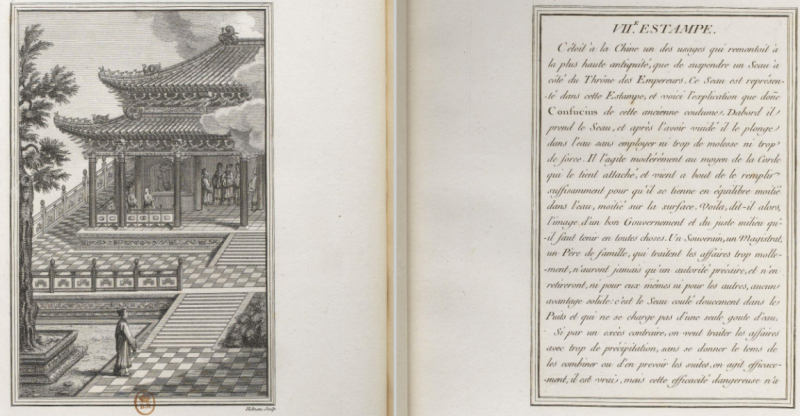 Helman Sculp.
VII.e ESTAMPE.
C'étoit à la Chine un des usages qui remontoit à
la plus haute antiquité, que de suspendre un Seau à
côté du Thrône des Empereurs. Ce Seau est représen-
té dans cette Estampe, et voici l'explication que doñe
Confucius de cette ancienne coutume. Dabord il
prend le Seau, et après l'avoir vuidé il le plonge
dans l'eau sans employer ni trop de molesse ni trop
de force. Il l'agite modérément au moyen de la Corde
qui le tient attaché, et vient a bout de le remplir
suffisamment pour qu'il se tienne en équilibre moitié
dans l'eau, moitié sur la surface. Voila, dit-il alors,
l'image d'un bon Gouvernement et du juste milieu qu'-
-il faut tenir en toutes choses. Un Souverain, un Magistrat,
un Père de famille, qui traitent les affaires trop molle-
-ment, n'auront jamais qu'un autorité précaire, et n'en
retireront, ni pour eux mêmes ni pour les autres, aucun
avantage solide: c'est le Seau coulé doucement dans le
Puits et qui ne se charge pas d'une seule goute d'eau.
Si par un excès contraire, on veut traiter les affaires
avec trop de précipitation, sans se donner le tems de
les combiner ou d'en prevoir les suites, on agit efficace-
-ment, il est vrai, mais cette efficacité dangereuse n'a